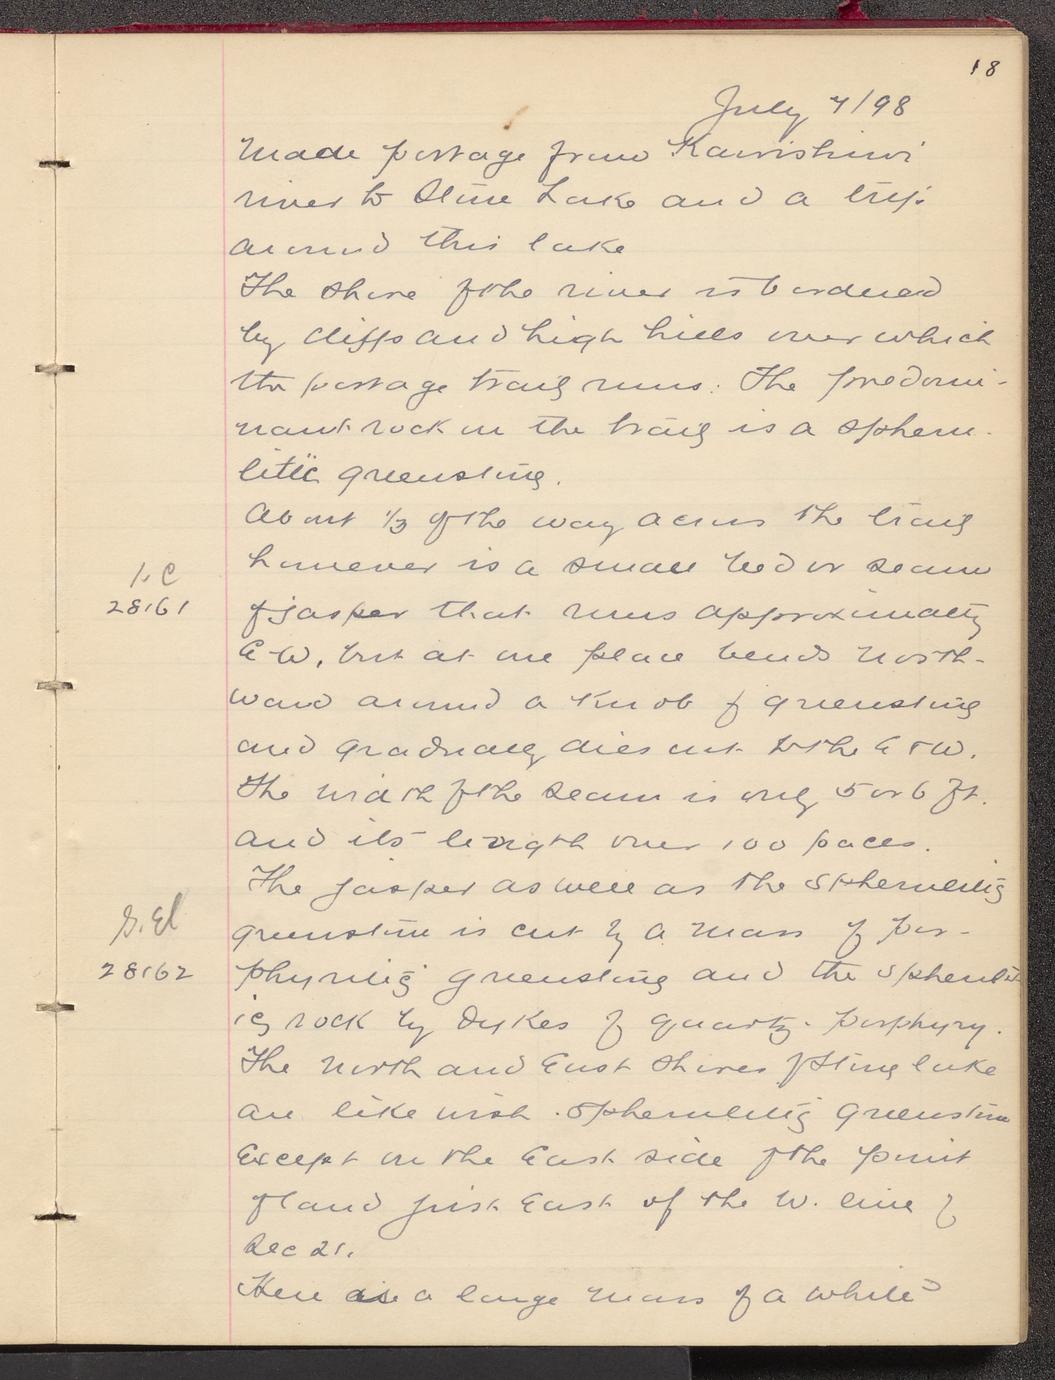 18
July 7/98
Made portage from Kawishiwi
river to Stone Lake and a trip
around this lake
The shore of the river is bordered
by cliffs and high hills over which
the portage trail runs. The predomi-
nant rock on the trail is a spheru-
litic greenstone.
About 1/3 of the way across the trail
however is a small bed or seam
1.C
28161
of jasper that runs approximately
E-W, but at one place bends north-
ward around a knob of greenstone
and gradually dies out to the E + W.
The width of the seam is only 5 or 6 ft.
and its length over 100 paces.
The jasper as well as the spherulitic
G.El
greenstone is cut by a mass of por-
28162
phyritic greenstone and the spherulit-
ic rock by dykes of quartz-porphyry.
The north and East shores of Stone lake
are like wise spherulitic greenstone
Except on the East side of the point
of land just East of the W. line of
Sec 21.
Here is a large mass of a white